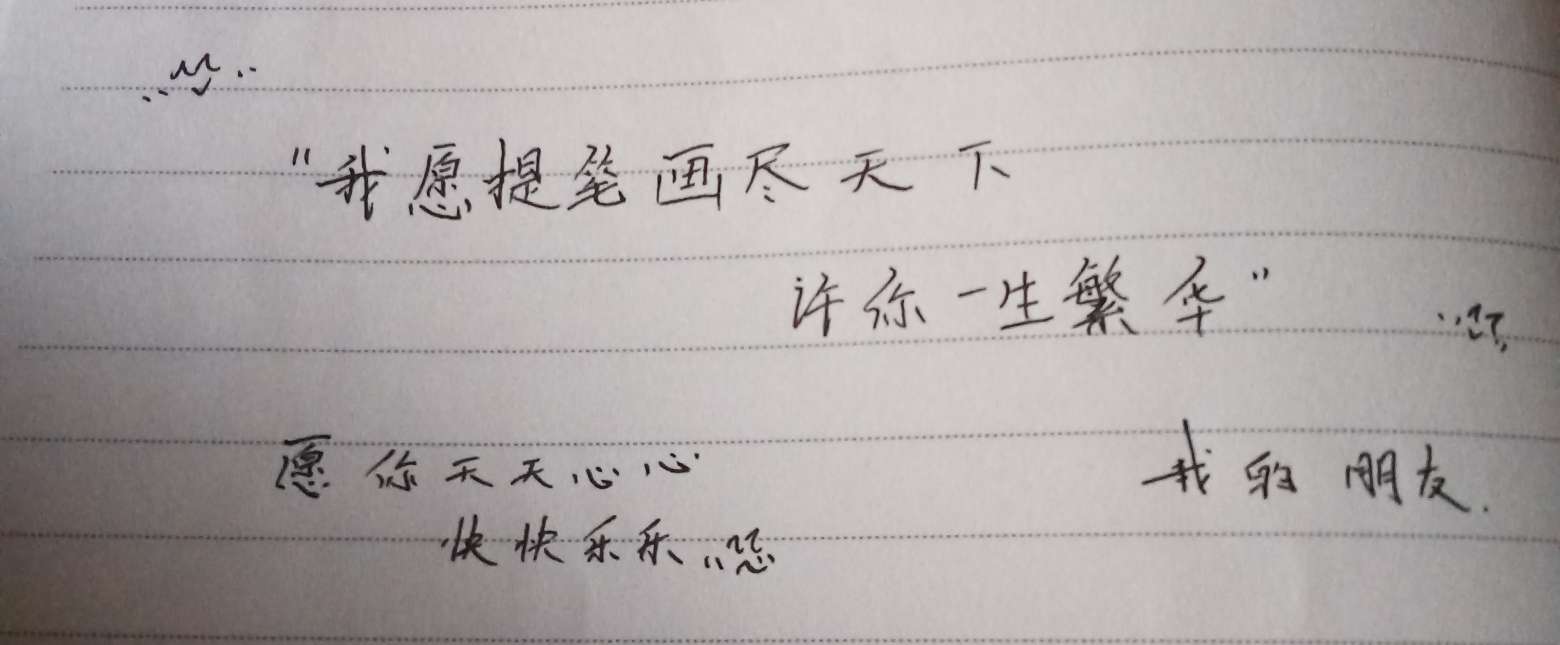 "我愿提笔画尽天下
许你一生繁华"
愿你天天心心
我的朋友.
快快乐乐